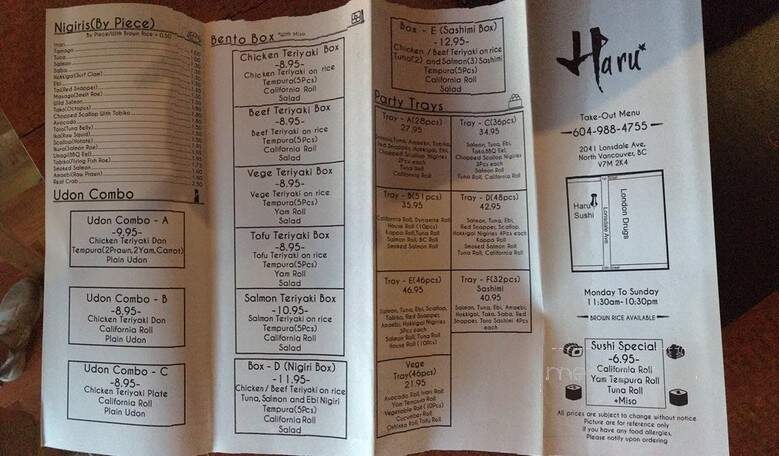 Nigiris(By Piece)
By Piece/With Brown Rice + 0.50
Inari
Tamago
Tuna
Salmon
Saba
Hokkigai(Surf Clam)
Ebi
Tai(Red Snapper)
Masago(Smelt Roe)
Wild Salmon
Tako(Octopus)
Chopped Scallop With Tobiko
Avocado
Toro(Tuna Belly)
Ika(Raw Squid)
Scallop(Hotate)
Ikura(Salmon Roe)
Unagi(BBQ Eel)
Tobiko(Flying Fish Roe)
Smoked Salmon
Amaebi(Raw Prawn)
Real Crab
Udon Combo
Udon Combo - A
-9.95-
Chicken Teriyaki Don
Tempura(2Prawn,2Yam,Carrot)
Plain Udon
Udon Combo - B
-8.95-
Chicken Teriyaki Don
California Roll
Plain Udon
Udon Combo - C
-8.95-
Chicken Teriyaki Plate
California Roll
Plain Udon
Bento Box *With Miso
Chicken Teriyaki Box
-8.95-
Chicken Teriyaki on rice
Tempura(5Pcs)
California Roll
Salad
Beef Teriyaki Box
-8.95-
Beef Teriyaki on rice
Tempura(5Pcs)
California Roll
Salad
Vege Teriyaki Box
-8.95-
Vege Teriyaki on rice
Tempura(5Pcs)
Yam Roll
Salad
Tofu Teriyaki Box
-8.95-
Tofu Teriyaki on rice
Tempura(5Pcs)
Yam Roll
Salad
Salmon Teriyaki Box
-10.95-
Salmon Teriyaki on rice
Tempura(5Pcs)
California Roll
Salad
Box - D (Nigiri Box)
-11.95-
Chicken / Beef Teriyaki on rice
Tuna, Salmon and Ebi Nigiri
Tempura(5Pcs)
California Roll
Salad
Box - E (Sashimi Box)
-12.95-
Chicken / Beef Teriyaki on rice
Tuna(2) and Salmon(3) Sashimi
Tempura(5Pcs)
California Roll
Salad
Party Trays
Tray - A(28pcs)
27.95
Salmon,Tuna, Amaebi, Tomago,
Red Snapper, Hokkigai, Ebi,
Chopped Scallop Nigiris
2Pcs each
Tuna Roll
California Roll
Tray - C(36pcs)
34.95
Salmon, Tuna, Ebi,
Tako,BBQ Eel,
Chopped Scallop Nigiris
3Pcs each
Salmon Roll
Tuna Roll, California Roll
Tray - B(51pcs)
35.95
California Roll, Dynamite Roll
House Roll (10pcs)
Kappa Roll,Tuna Roll
Salmon Roll, BC Roll
Smoked Salmon Roll
Tray - D(48pcs)
42.95
Salmon, Tuna, Ebi,
Red Snapper, Scallop,
Hokkigai Nigiries 4Pcs each
Kappa Roll
Smoked Salmon Roll
Tuna Roll, California Roll
Tray - E(46pcs)
46.95
Salmon, Tuna, Ebi, Scallop,
Tobiko, Red Snapper,
Amaebi, Hokkigai Nigiries
3Pcs each
Salmon Roll, Tuna Roll
House Roll (10Pcs)
Tray - F(32pcs)
Sashimi
40.95
Salmon, Tuna, Ebi, Amaebi,
Hokkigai, Tako, Saba, Red
Snapper, Toro Sashimi 4Pcs
each
Vege
Tray(46pcs)
21.95
Avocado Roll, Inari Roll
Yam Tempura Roll
Vegetable Roll (10Pcs)
Cucumber Roll
Oshinko Roll, Tofu Roll
Haru
Take-Out Menu
604-988-4755
2041 Lonsdale Ave,
North Vancouver, BC
V7M 2K4
Haru
Sushi
Lonsdale Ave
London Drugs
Monday To Sunday
11:30am-10:30pm
BROWN RICE AVAILABLE
Sushi Special
-6.95-
California Roll
Yam Tempura Roll
Tuna Roll
+Miso
All prices are subject to change without notice
Picture are for reference only
If you have any food allergies,
Please notify upon ordering